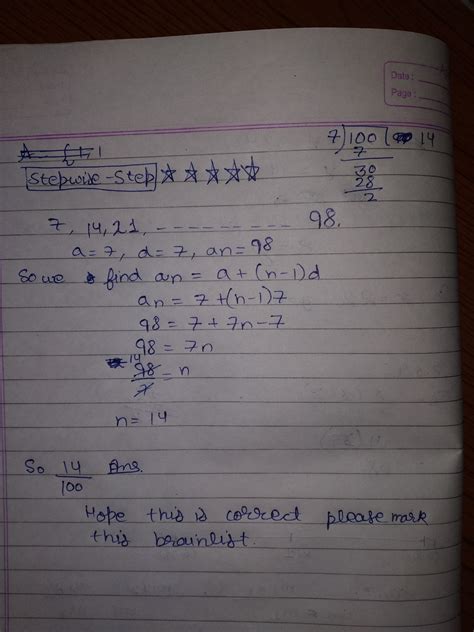 Date :
Page :
7)100(14
7
30
28
2
Stepwise-Step ☆☆☆☆☆
7, 14, 21, - - - - - - - - - 98.
a=7, d=7, an=98
So we find an = a+(n-1)d
an = 7+(n-1)7
98 = 7+7n-7
98 = 7n
14
98/7 = n
n= 14
So 14/100 Ans.
Hope this is correct please mark
this brainlist.